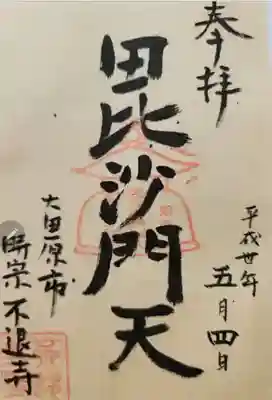 奉拝
平成卅年
五月四日
毘沙門天
大田原市
時宗 不退寺